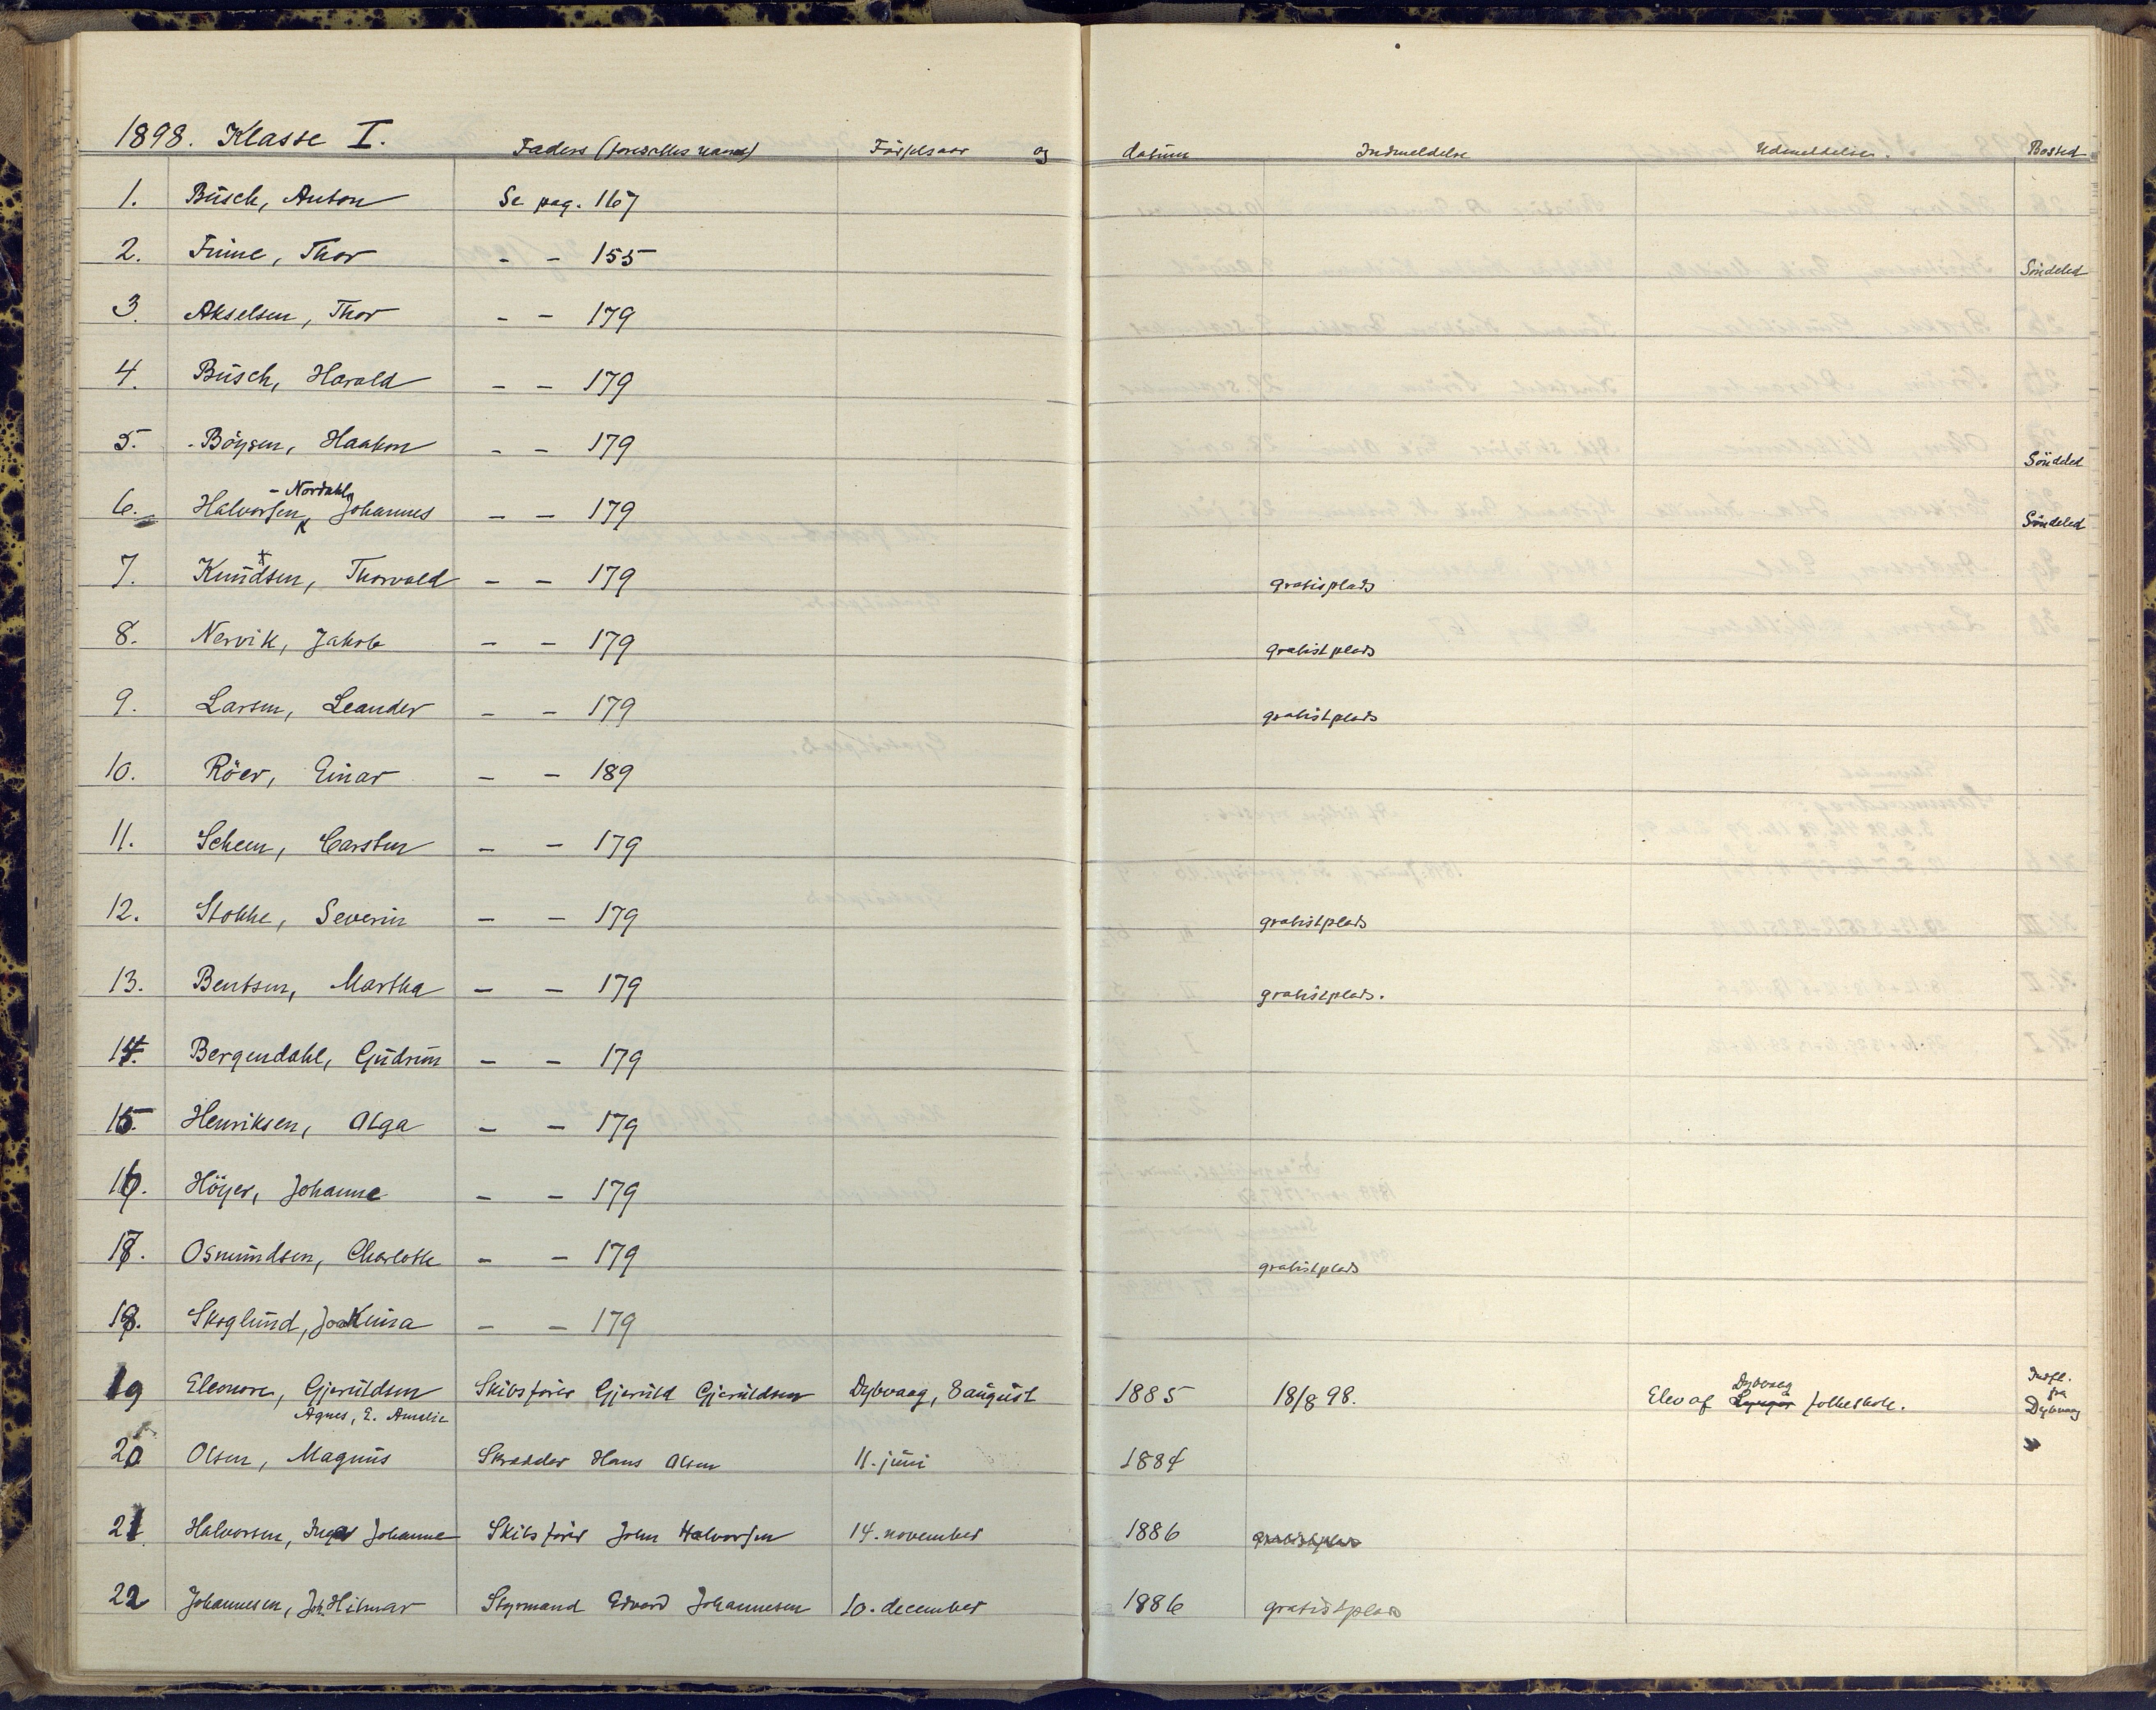 1898. Klasse I. Faders (foresattes navn) Födselsaar og datum Indmeldelse Udmeldelse. Bosted
1. Busch, Anton Se pag. 167
2. Finne, Thor - - 155 Söndeled
3. Akselsen, Thor - - 179
4. Busch, Harald - - 179
5. Böysen, Haakon - - 179 Söndeled
- Nordahl,
6. Halvorsen, Johannes - - 179 Söndeled
7. Knudsen, Thorvald - - 179 gratisplads
8. Nervik, Jakob - - 179 gratistplads
9. Larsen, Leander - - 179 gratistplads
10. Röer, Einar - - 189
11. Scheen, Carsten - - 179
12. Stokke, Severin - - 179 gratistplads
13. Bentsen, Martha - - 179 gratistplads.
14. Bergendahl, Gudrun - - 179
15. Henriksen, Olga - - 179
16. Höyer, Johanne - - 179
17. Osmundsen, Charlotte - - 179 gratistplads
18. Skoglund, Joakima - - 179
19 Eleonore, Gjeruldsen Skibsförer Gjeruld Gjeruldsen Dybvaag, 8 august 1885 18/8 98. Elev af Lyngør Dybvaag folkeskole. Indfl. fra Dybvaag
Agnes, E. Amalie
20 Olsen, Magnus Skrædder Hans Olsen 11. juni 1884
21 Halvorsen, Inga Johanne Skibsförer John Halvorsen 14. november 1886 gratistplads
22 Johannesen, Joh. Hilmar Styrmand Edvard Johannesen 10. december 1886 gratistplads